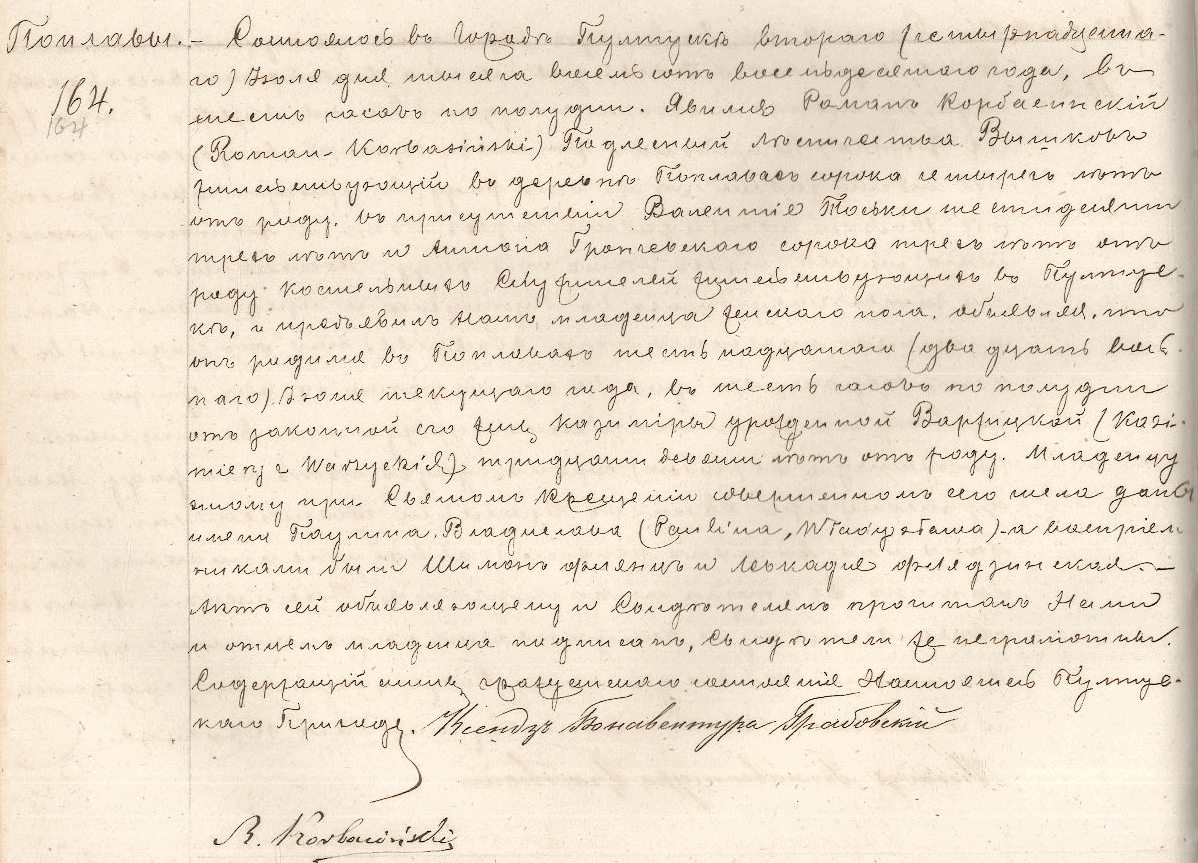 Поплавы. – Состоялось въ Городѣ Пултускѣ втораго (четырнадцата-
164.
164
го) Іюля дня тысяча восемьсотъ восемьдесятаго года, въ
шесть часовъ по полудни. Явился Романъ Корбасинскій
(Roman Korbasiński) Подлесный лѣсничества Вышковъ
жительствующій въ деревнѣ Поплавахъ сорока четырехъ лѣтъ
отъ роду, въ присутствіи Валентія Тоски шестидесяти
трехъ лѣтъ и Антона Грончевскаго сорока трехъ лѣтъ отъ
роду костельныхъ Служителей жительствующихъ въ Пултус-
кѣ, и предъявилъ Намъ младенца женскаго пола, объявляя, что
онъ родился въ Поплавахъ шестьнадцатаго (двадцать вось-
маго) Іюня текущаго года, въ шесть часовъ по полудни
отъ законной его жены Казиміры урожденной Варжицкой (Kazi-
miery z Warzyckich) тридцати девяти лѣтъ отъ роду. Младенцу
этому при Святомъ Крещеніи совершенномъ сего числа даны
имена Паулина, Владислава (Paulina, Władysława) – а воспріем-
никами были Шимонъ и Леокадія –
Актъ сей объявляющему и Свидѣтелямъ прочитанъ Нами
и отцемъ младенца подписанъ, Свидѣтели же неграмотны.
Содержащій акты гражданскаго состоянія Настоятель Пултус-
каго Прихода. Ксендзъ Бонавентура Грабовскій
R. Korbasiński